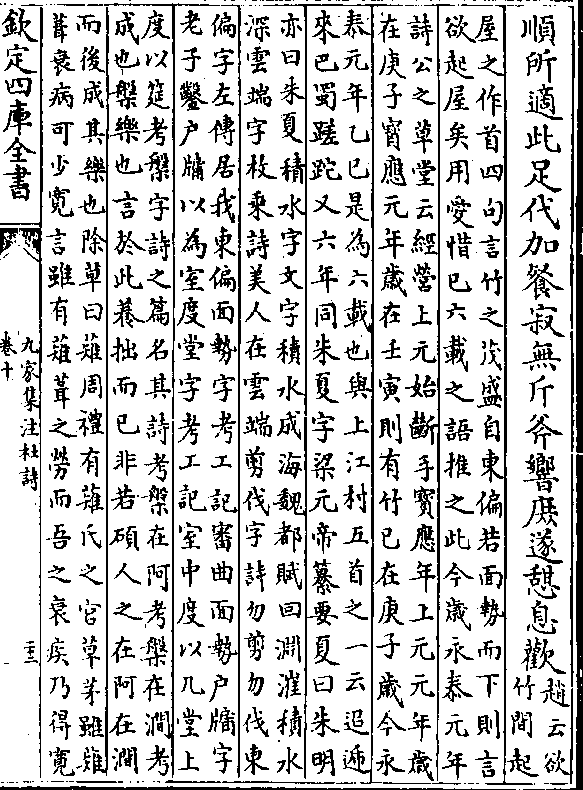 順所適此足代加餐寂無斤斧響庶遂憩息歡趙云欲竹間起
屋之作首四句言竹之茂盛自東偏若面勢而下則言
欲起屋矣用愛惜已六載之語推之此今歲永泰元年
詩公之草堂云經營上元始斷手寶應年上元元年歲
在庚子寶應元年歲在壬寅則有竹已在庚子歲今永
泰元年乙巳是為六載也與上江村五首之一云迢遞
來巴蜀蹉跎又六年同朱夏字梁元帝纂要夏曰朱明
亦曰朱夏積水字文字積水成海魏都賦回淵漼積水
深雲端字枚乘詩美人在雲端剪伐字詩勿剪勿伐東
偏字左傳居我東偏面勢字考工記審曲面勢户牖字
老子鑿户牖以為室度堂字考工記室中度以几堂上
度以筵考槃字詩之篇名其詩考槃在阿考槃在澗考
成也槃樂也言於此養拙而已非若碩人之在阿在澗
而後成其樂也除草曰薙周禮有薙氏之官草茅雖薙
葺衰病可少寛言雖有薙葺之勞而吾之衰疾乃得寛
欽定四庫全書
九家集注杜詩
卷十
二十三